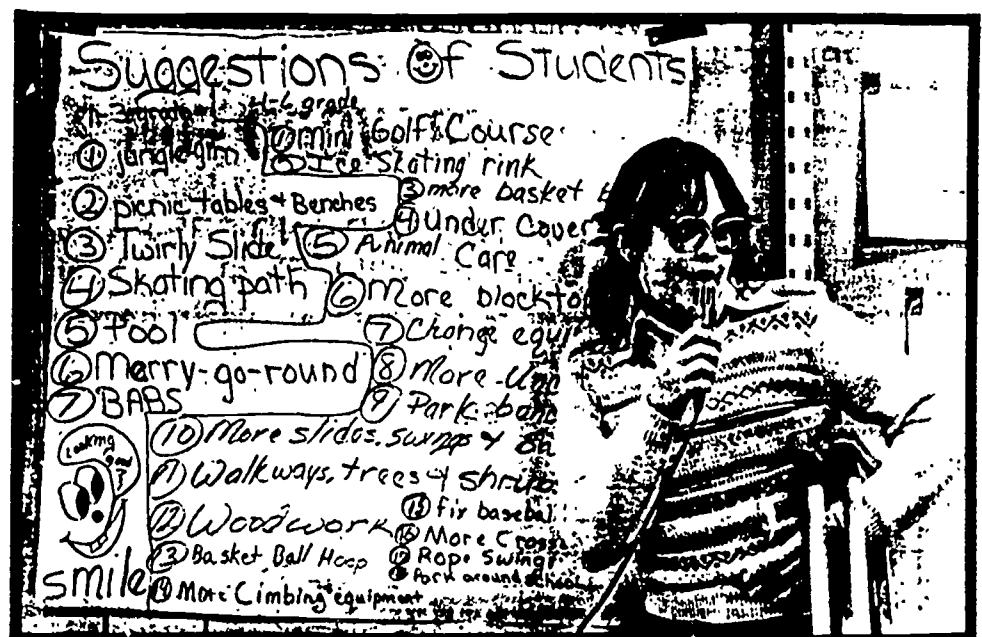 Suggestions Of Students
4-6 grade
① jungle gym
② picnic tables & Benches
③ Twirly Slide
④ Skating path
⑤ Pool
⑥ Merry-go-round
⑦ BARS
① Mini Golf Course
② Ice Skating rink
③ more basket
④ Under Cover
⑤ Animal Care
⑥ More blockto
⑦ Change equi
⑧ More
⑨ Park
⑩ More slides, swings &
⑪ Walkways, trees & shrub
⑫ Woodwork
⑬ Basket Ball Hoop
⑭ More Climbing equipment
⑮ fix basebal
⑯ More
⑰ Rope Swing
⑱ Park around school
Looking Good?
smile